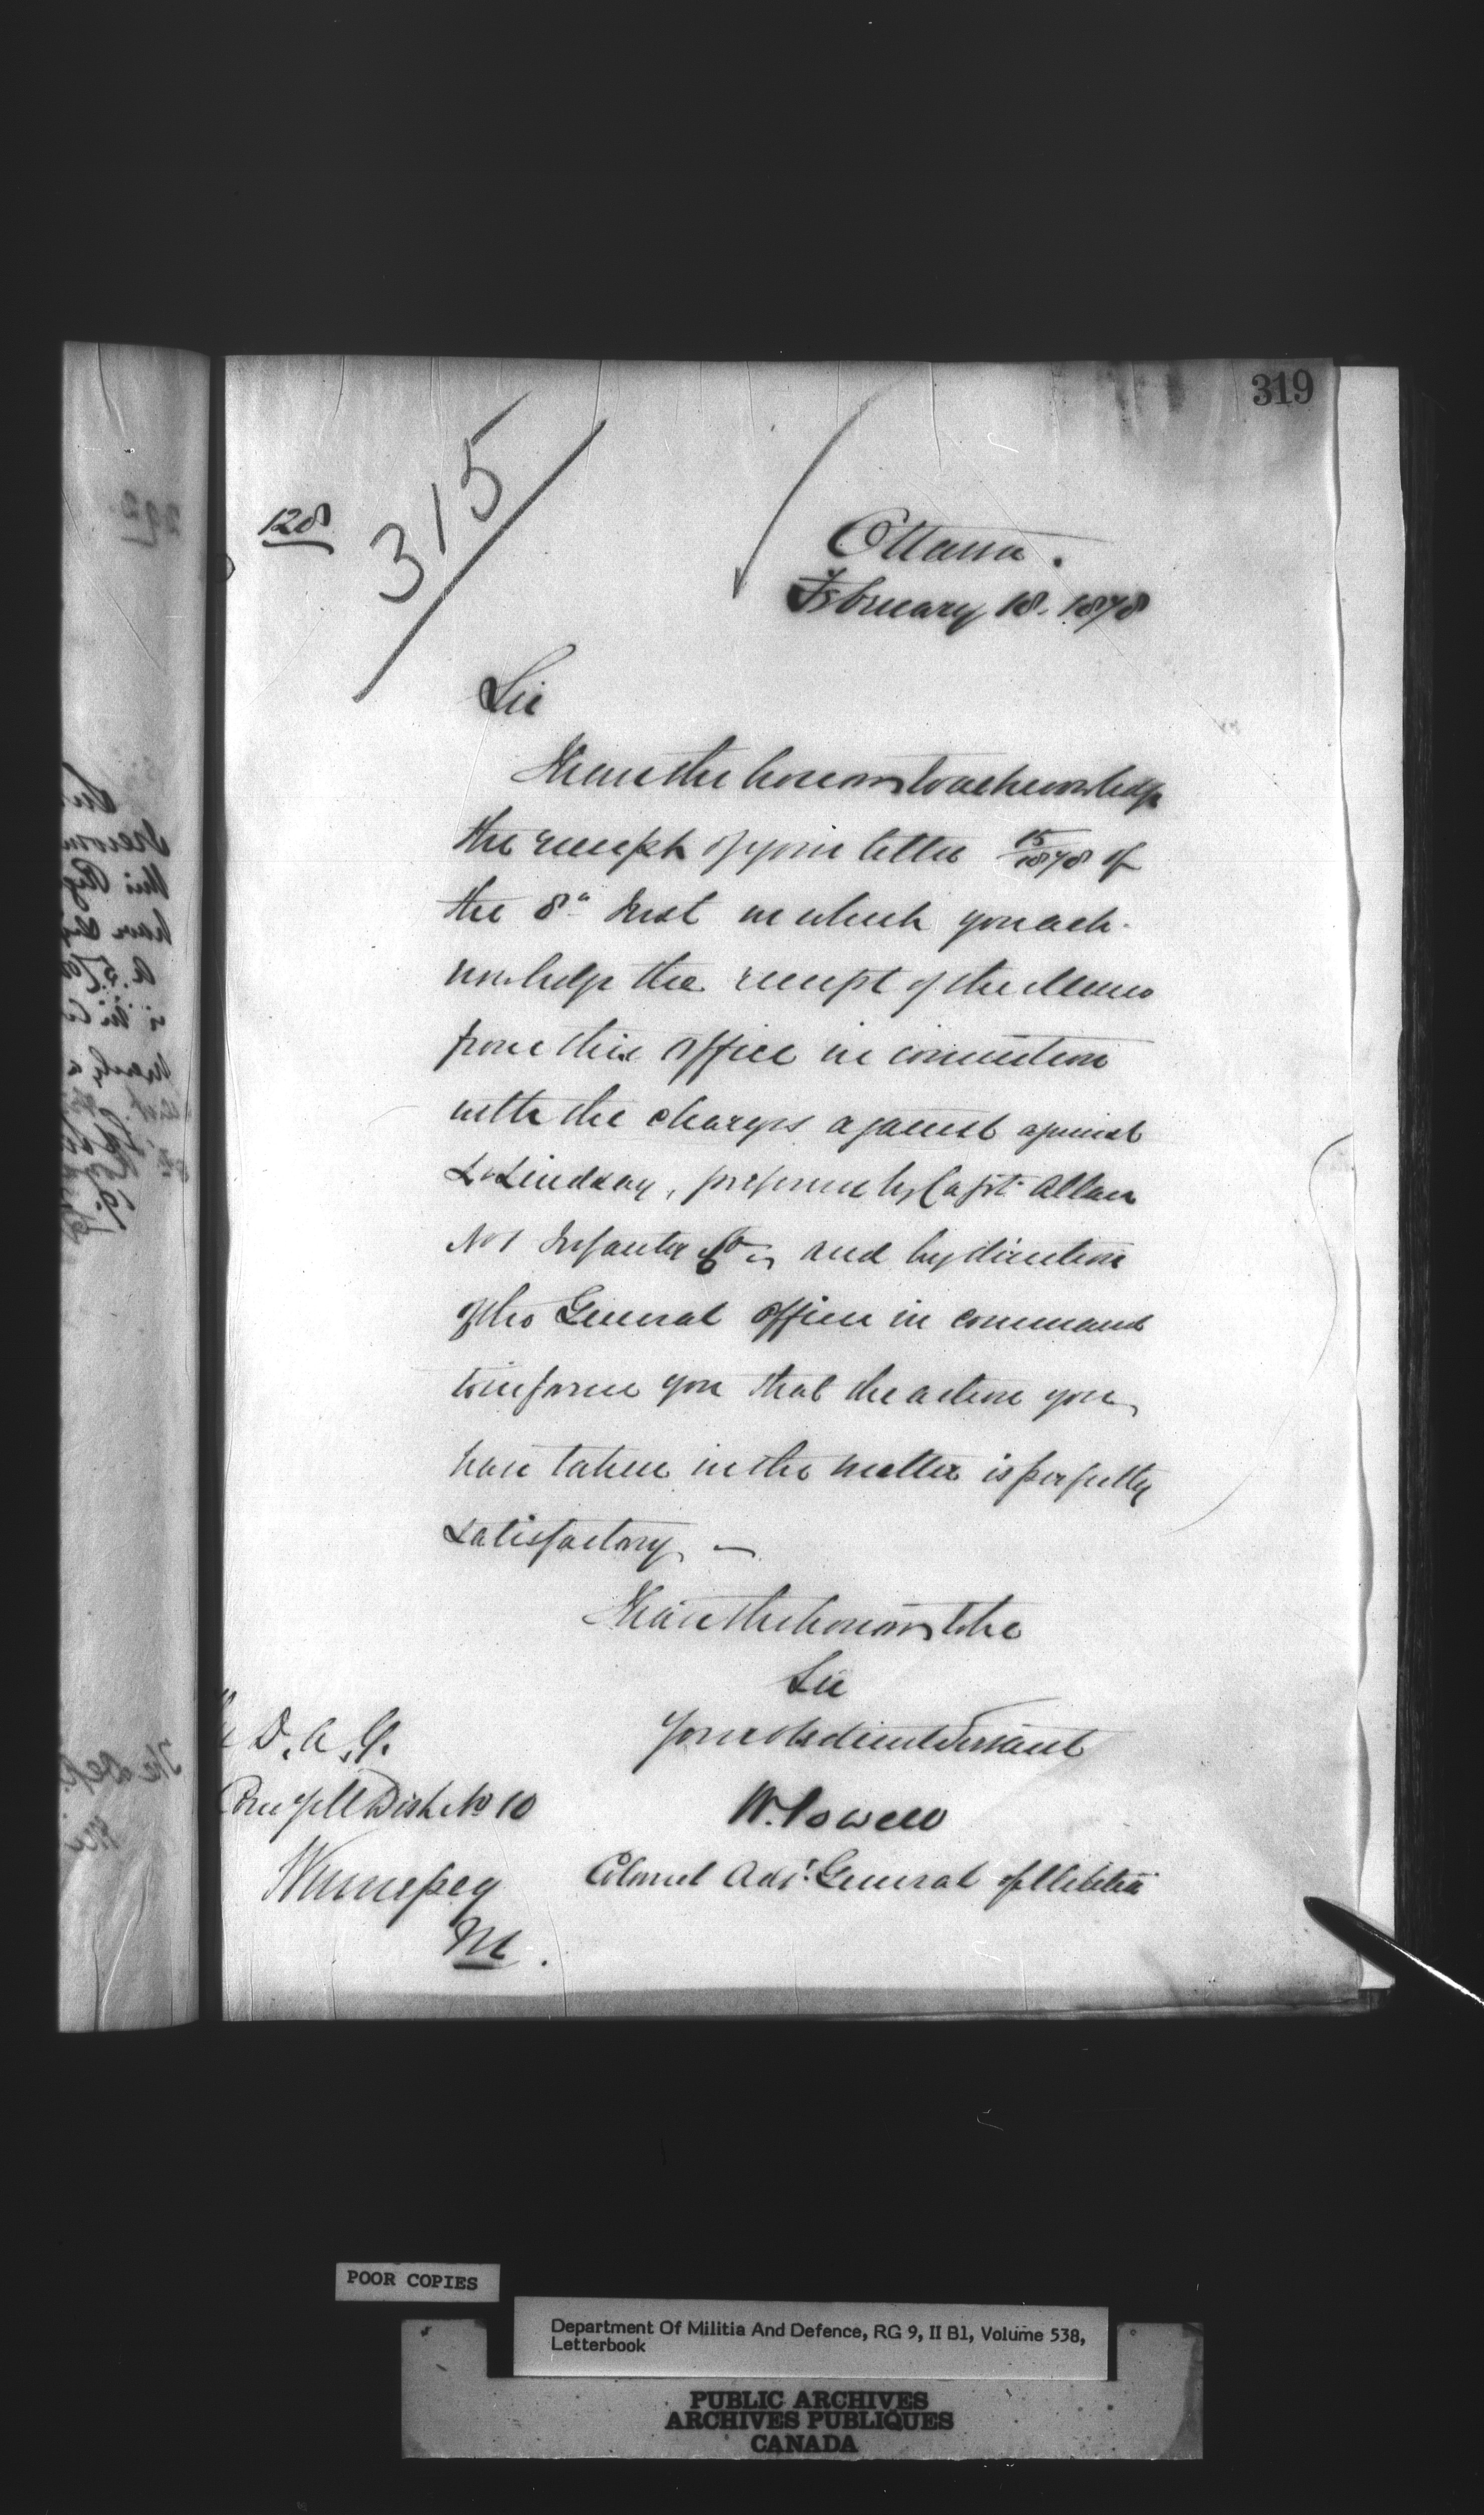 319
128
315
Ottawa.
February 18. 1878
Sir
I have the honour to acknowledge
the receipt of your letter 15/1878 of
the 8th Inst in which you ack-
nowledge the receipt of the Memo
from this office in connection
with the charges against against
Lt Lindsay, preferred by Capt. Allan
No 1 Infantry Co, and by direction
of the General Officer in command
to inform you that the action you
have taken in the matter is perfectly
satisfactory. —
I have the honour to be
Sir
Your obedient Servant
W. Powell
Colonel Adjt. General of Militia
D. A. G.
Com'g M Dist No 10
Winnipeg
M.
POOR COPIES
Department Of Militia And Defence, RG 9, II B1, Volume 538,
Letterbook
PUBLIC ARCHIVES
ARCHIVES PUBLIQUES
CANADA